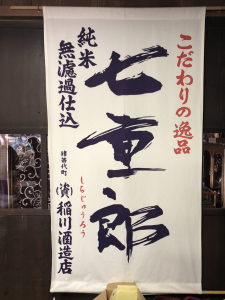 こだわりの逸品
七重郎
しちじゅうろう
純米
無濾過仕込
猪苗代町
(資)稲川酒造店